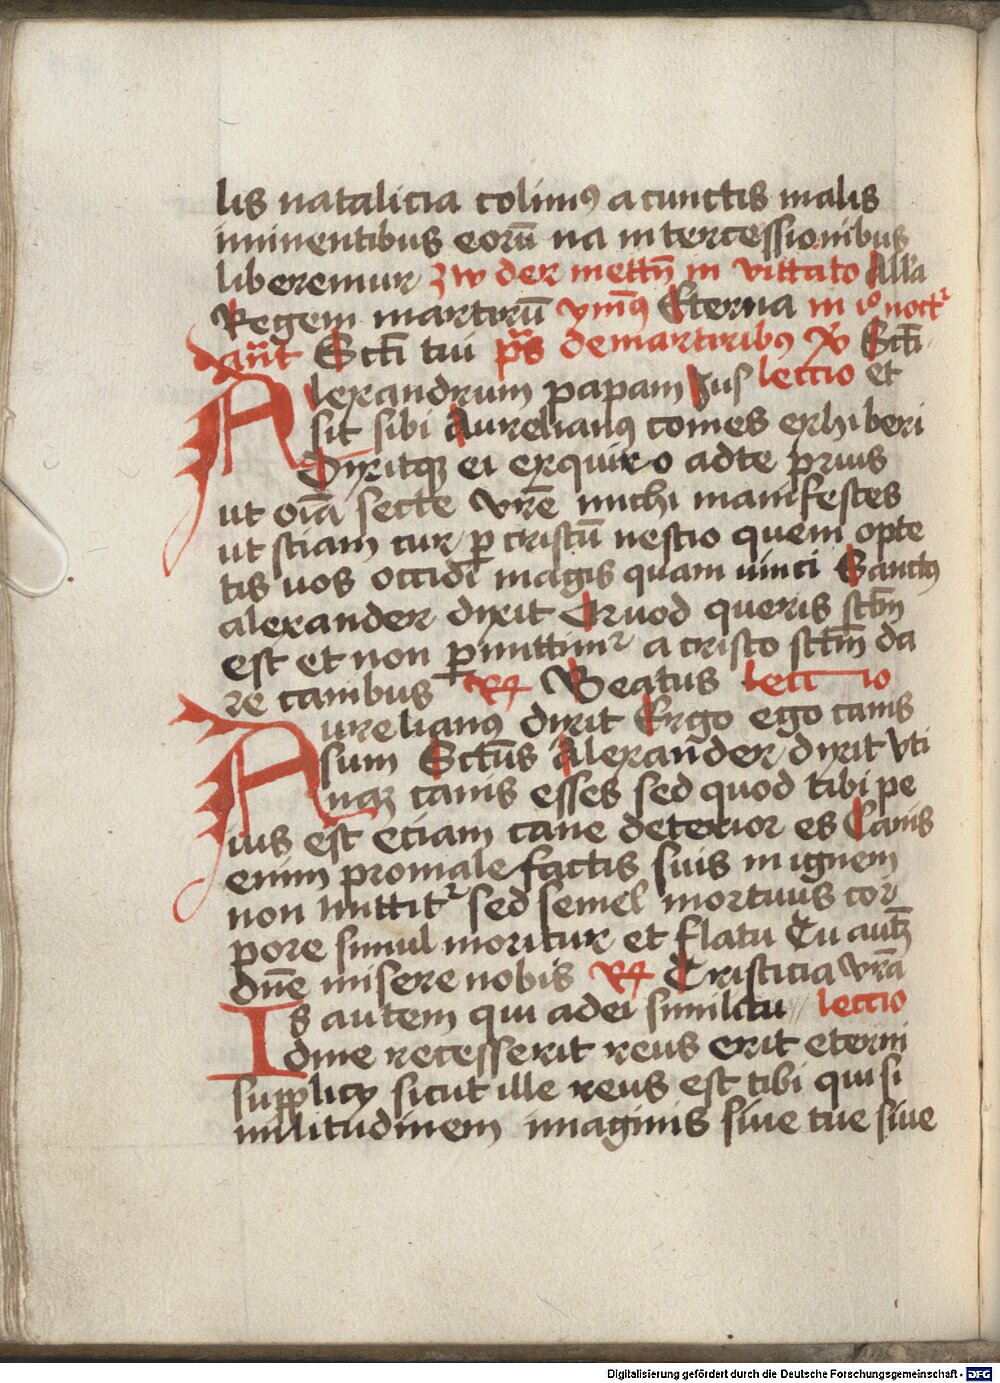 lis natalicia colimꝰ a cunctis malis
iminentibus eorū na intercessionibus
liberemur zw der mettn̄ in vittato Alla
Regem martirū ymꝰ Eterna in io noctr̄
Sct̄i tui ps̄ de martiribꝰ Sct̄i
Alexandrum papam Jus lectio et
sit sibi Aurelianꝰ comes exhiberi
Dixitqꝫ ei exquiro adte prius
ut oīa secte vrē michi manifestes
ut sciam cur ꝑ cristū nescio quem opte
tis uos occidi magis quam uinci Sanctꝰ
alexander dixit Quod queris sct̄m
est et non ꝑmittimr̄ a cristo sct̄m da
re canibus R̄ Beatus lectio
Aurelianꝰ dixit Ergo ego canis
sum Sct̄us Alexander dixit Vti
naꝫ canis esses sed quod tibi pe
ius est etiam cane deterior es Canis
enim promale factis suis in ignem
non mittitr̄ sed semel mortuus cor
pore simul moritur et flatu Tu autꝫ
dn̄e miserenobis R̄ Tristicia vrā
Is autem qui adei similitu // lectio
dine recesserit reus erit eterni
supplicy sicut ille reus est tibi qui si
militudinem imaginis siue tue siue
Digitalisierung gefördert durch die Deutsche Forschungsgemeinschaft - DFG